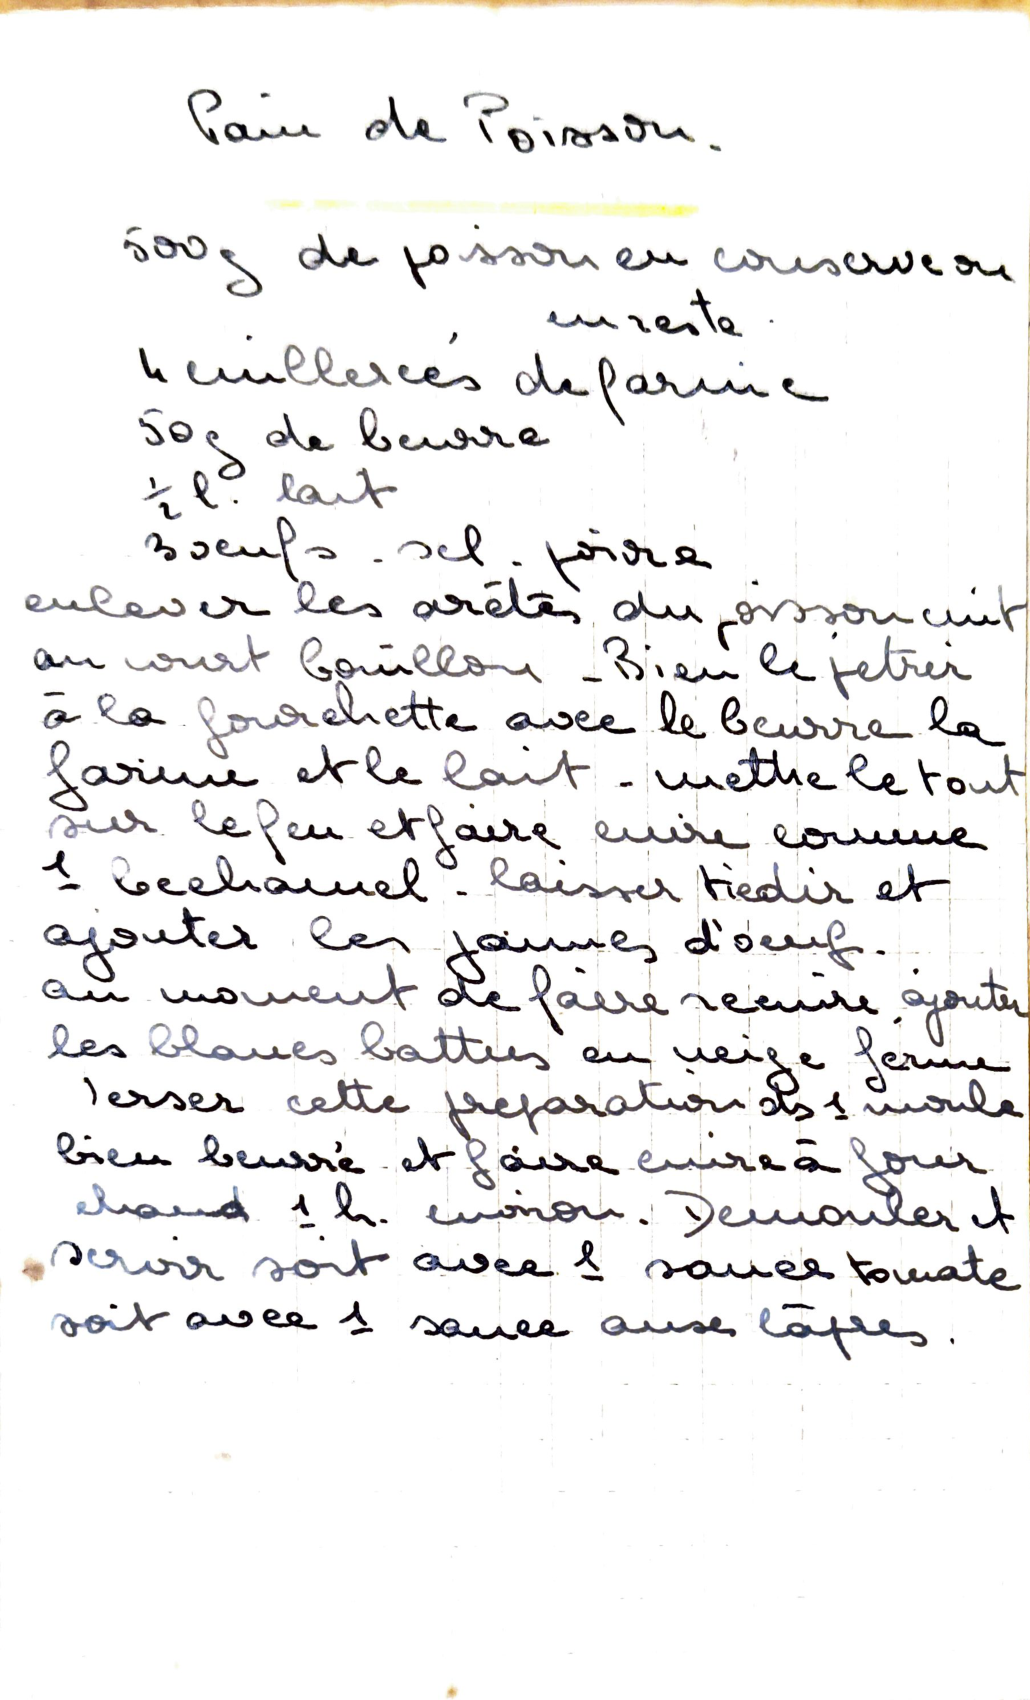 Pain de Poisson.
500g de poisson en conserve ou
en reste.
4 cuillerées de farine
50g de beurre
½ l. lait
3 oeufs - sel - poivre
enlever les arêtes du poisson cuit
au court bouillon - Bien le petrir
à la fourchette avec le beurre la
farine et le lait - mettre le tout
sur le feu et faire cuire comme
1 bechamel - laisser tiedir et
ajouter les jaunes d'oeuf.
au moment de faire recuire ajouter
les blancs battus en neige ferme
Verser cette preparation ds 1 moule
bien beurré et faire cuire à four
chaud 1 h. environ. Demouler et
servir soit avec 1 sauce tomate
soit avec 1 sauce aux câpres.